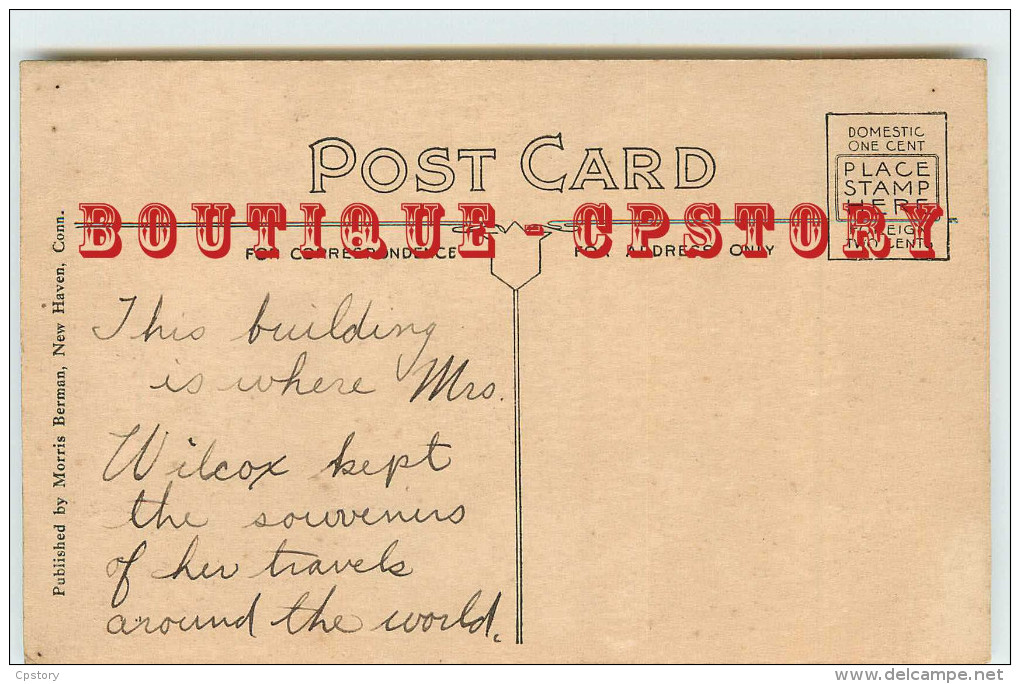 POST CARD
DOMESTIC
ONE CENT
PLACE
STAMP
HERE
TWO CENTS
BOUTIQUE - CPSTORY
FOR CORRESPONDENCE
FOR ADDRESS ONLY
Published by Morris Berman, New Haven, Conn.
This building
is where Mrs.
Wilcox kept
the souvenirs
of her travels
around the world.
Cpstory
delcampe.net